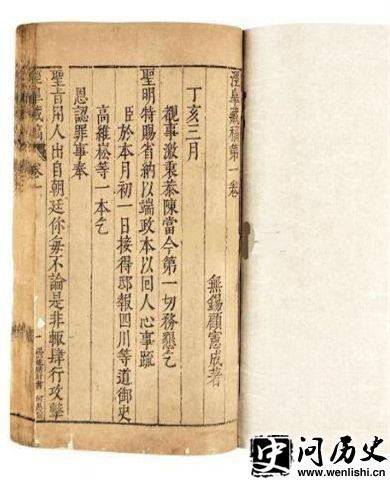 涇臯藏稿第一卷
無錫顧憲成著
丁亥三月
覩事激衷恭陳當今第一切務懇乞
聖明特賜省納以端政本以回人心事疏
臣於本月初一日接得邸報四川等道御史
高維崧等一本乞
恩認罪事奉
聖旨用人出自朝廷你每不論是非輙肆行攻擊
涇臯藏稿 卷一
一
史 问历史
www.wenlishi.cn